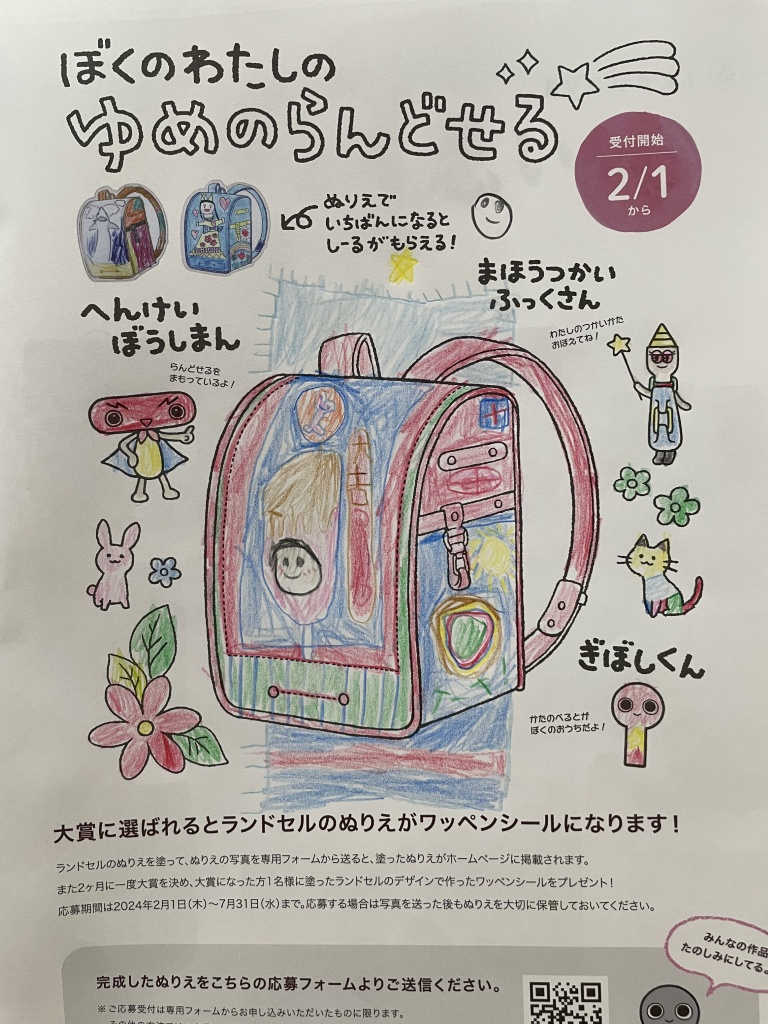 ぼくのわたしの
ゆめのらんどせる
受付開始
2/1
から
ぬりえで
いちばんになると
しーるがもらえる!
まほうつかい
ふっくさん
わたしのつかいかた
おぼえてね!
へんけい
ぼうしまん
らんどせるを
まもっているよ!
大吉
ぎぼしくん
かたのべるとが
ぼくのおうちだよ!
大賞に選ばれるとランドセルのぬりえがワッペンシールになります!
ランドセルのぬりえを塗って、ぬりえの写真を専用フォームから送ると、塗ったぬりえがホームページに掲載されます。
また2ヶ月に一度大賞を決め、大賞になった方1名様に塗ったランドセルのデザインで作ったワッペンシールをプレゼント!
応募期間は2024年2月1日(木)〜7月31日(水)まで。応募する場合は写真を送った後もぬりえを大切に保管しておいてください。
みんなの作品
たのしみにしてるよ
完成したぬりえをこちらの応募フォームよりご送信ください。
※ご応募受付は専用フォームからお申し込みいただいたものに限ります。